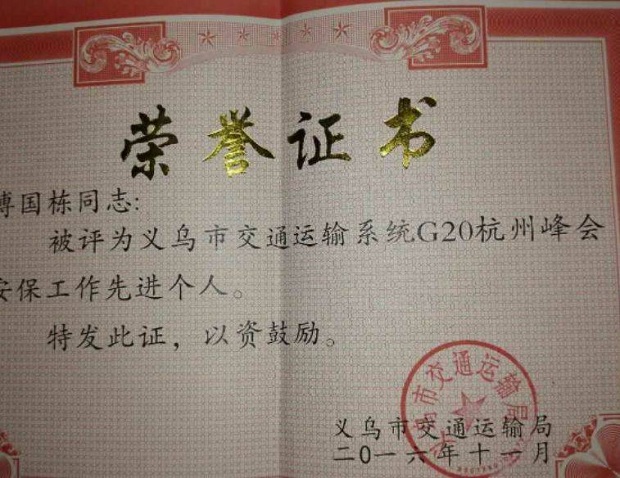 荣誉证书
傅国栋同志:
被评为义乌市交通运输系统G20杭州峰会
安保工作先进个人。
特发此证，以资鼓励。
义乌市交通运输局
二0一六年十一月